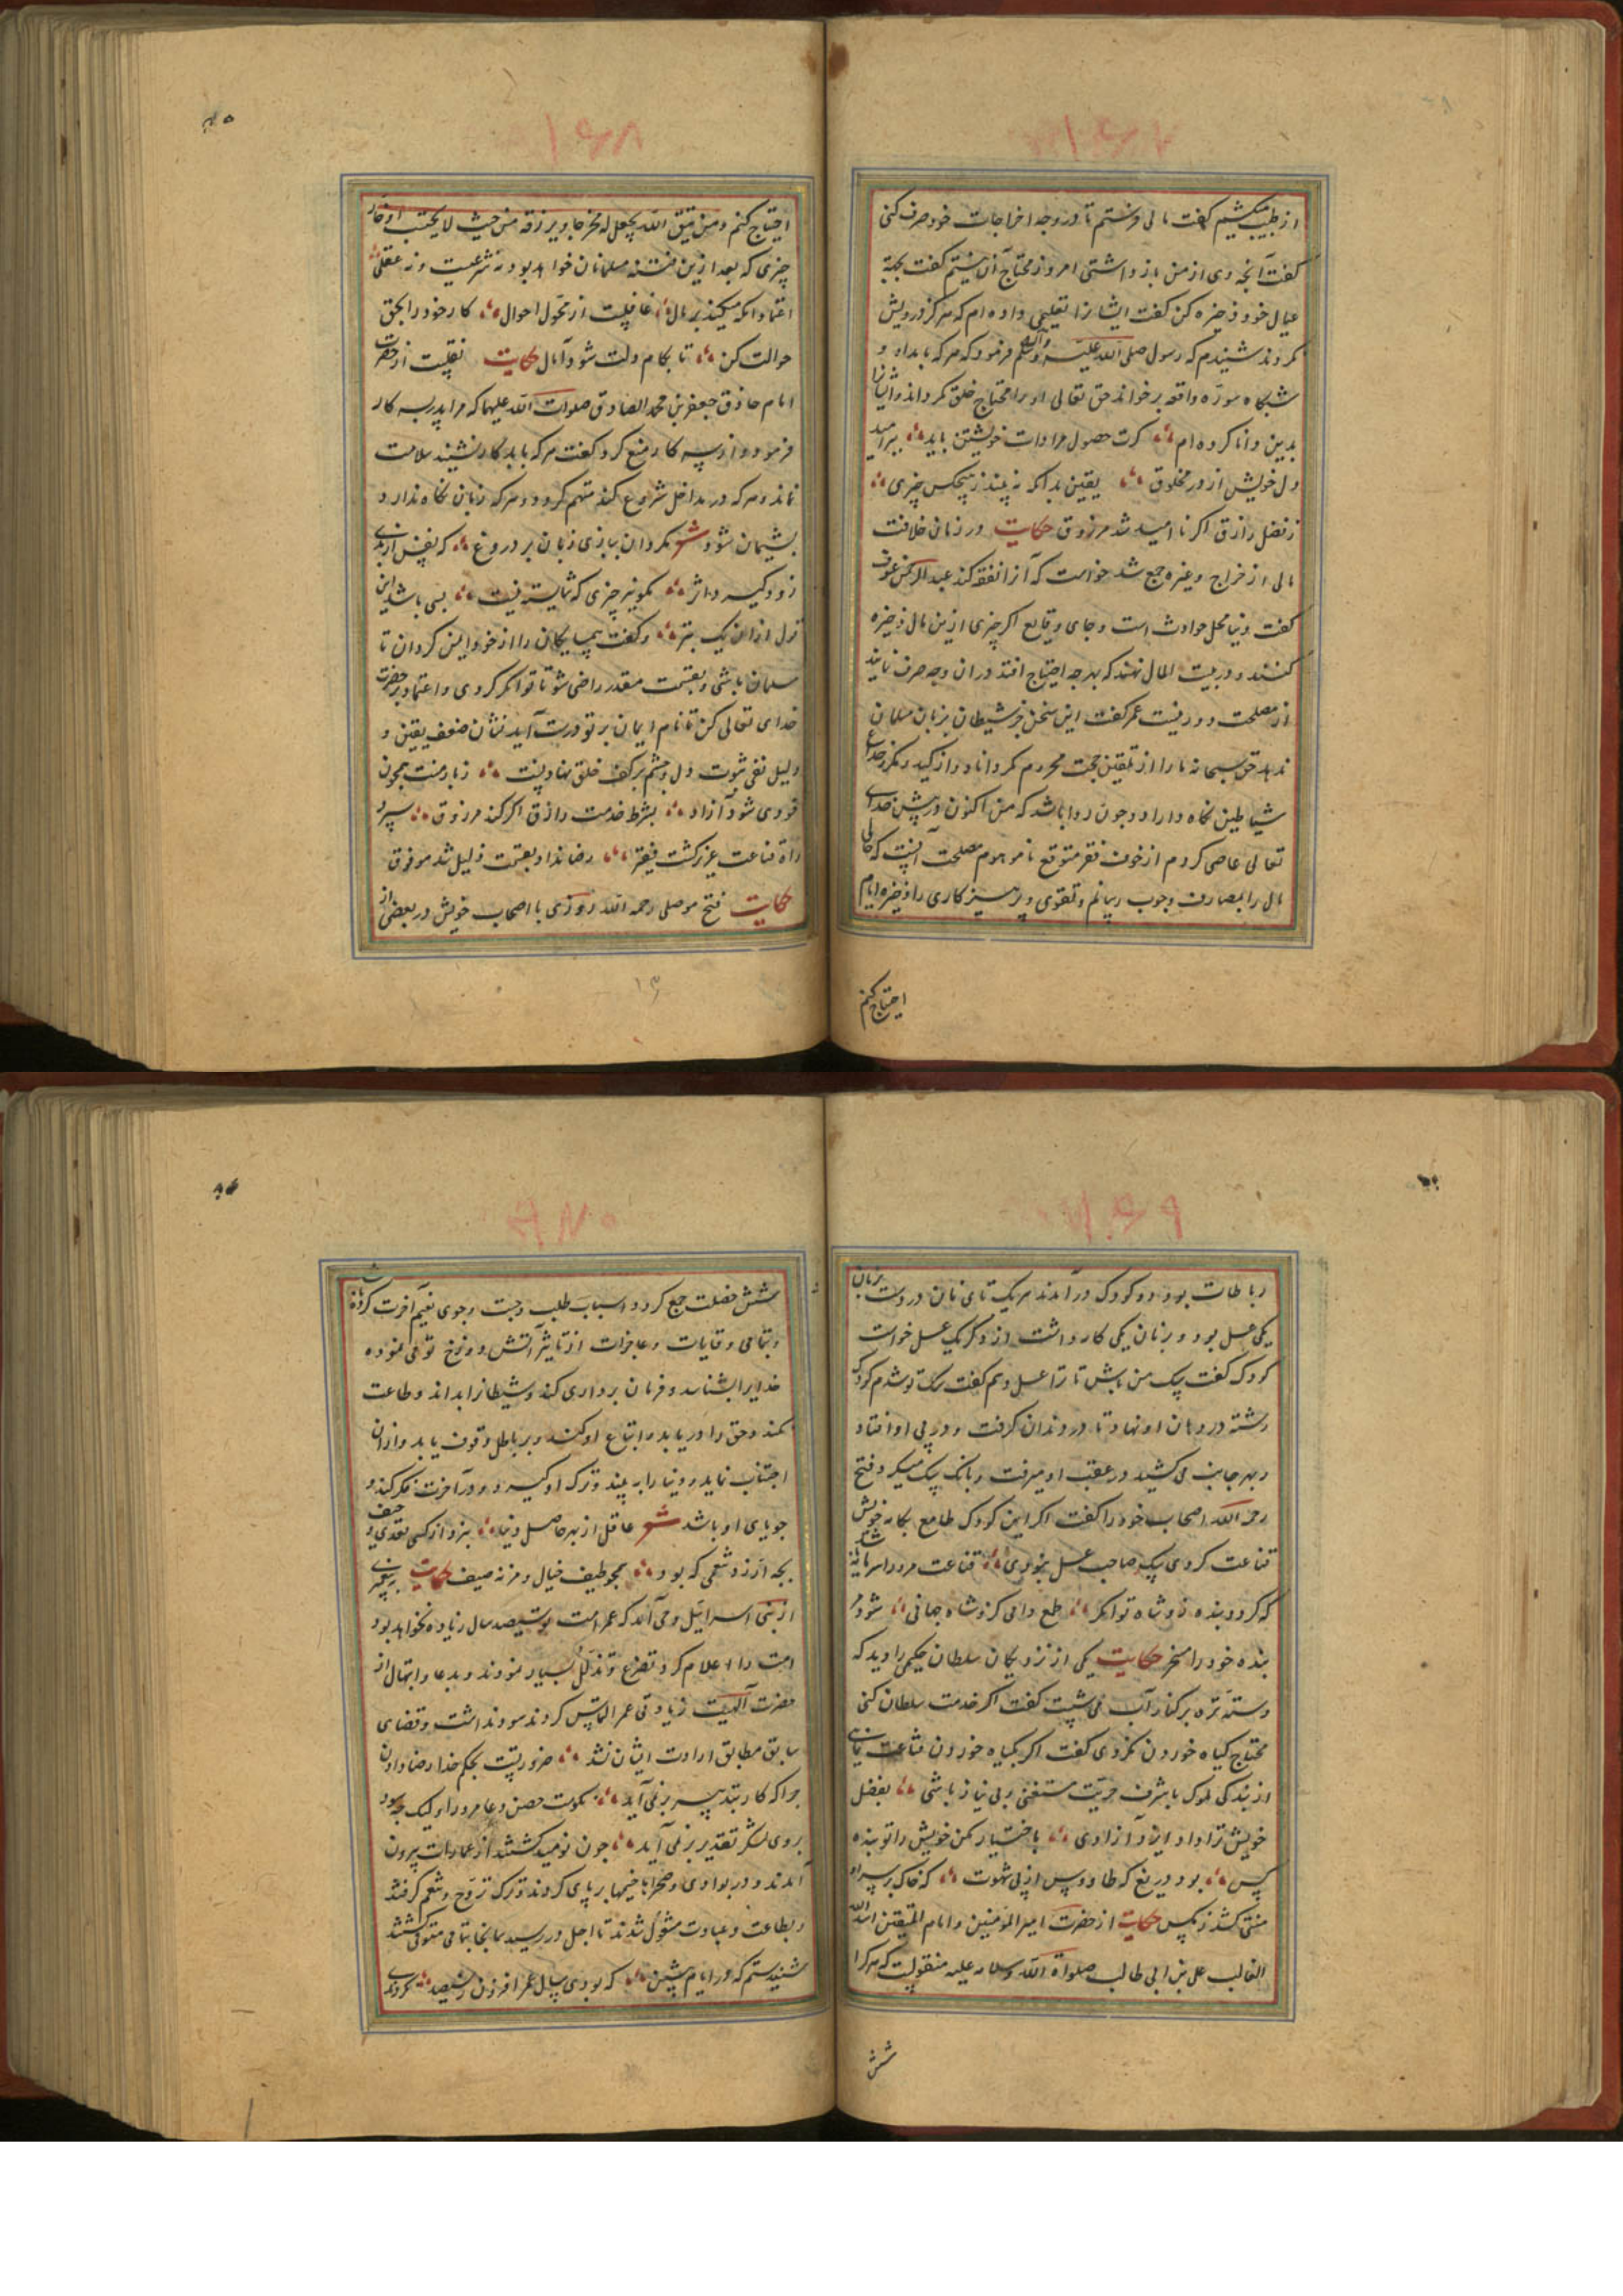 از طبیب میکشیم گفت مالی فرستم تا در وجه اخراجات خود صرف کنی
گفت آنچه دی از من باز داشتی امروز محتاج آن نیستم گفت بجهة
عیال خود ذخیره کن گفت ایشانرا تعلیمی داده ام که هرگز درویش
نگردند شنیدم که رسول صلی الله علیه وآله وسلم فرمود که هر که بامداد و
شبانگاه سورة واقعه برخواند حق تعالی او را محتاج خلق نگرداند و ایشانرا
بدین دانا کرده ام گرت حصول مرادات خویشتن باید ببر امید
دل خویش از در مخلوق یقین بدانکه نه بیند ز هیچکس چیزی
ز فضل رازق اگر ناامید شد مرزوق حکایت در زمان خلافت
مالی از خراج و غیره جمع شد خواست که آنرا نفقه کند عبدالرحمن عوف
گفت دنیا محل حوادث است و جای وقایع اگر چیزی ازین مال ذخیره
کنند و در بیت المال نهند که بهرچه احتیاج افتد در ان وجه صرف نمایند
از مصلحت دور نیست عمر گفت این سخن جز شیطان بر زبان مسلمان
ندهد حق سبحانه ما را از تلقین حجت محروم نگرداناد و از کید و مکر و خداع
شیاطین نگاه داراد و چون روا باشد که من اکنون در پیش خدای
تعالی عاصی گردم از خوف فقر متوقع نا موهوم مصلحت آنست که حالی
مال را بمصارف وجوب رسانم و تقوی و پرهیزکاری را ذخیره ایام
احتیاج کنم
۸۵
احتیاج کنم ومن یتق الله یجعل له مخرجا ویرزقه من حیث لا یحتسب
چیزی که بعد ازین فتنه مسلمانان خواهد بود نه شرعیست و نه عقلی
اعتماد انکه میکند بر مال غافلیست از تحول احوال کار خود را بحق
حوالت کن تا بکام دلت شود آمال حکایت نقلیست از حضرت
امام حاذق جعفر بن محمد الصادق صلوات الله علیهما که مرا پدر به کار
فرمود و از سه کار منع کرد گفت هر که با بد کار نشیند سلامت
نماند و هر که در مداخل شروع کند متهم گردد و هر که زبان نگاه ندارد
پشیمان شود شعر مگردان ببازی زبان بر دروغ که نفس
زود گیرد اثر مگو نیز چیزی که شایسته نیست بسی باشد این
ترک از ان یک بتر و گفت همسایگان را از خود ایمن گردان تا
مسلمان باشی و بقسمت مقدر راضی شو تا توانگر گردی و اعتماد بر حضرت
خدای تعالی کن تا نام ایمان بر تو درست آید نشان ضعف یقین و
دلیل نفی ثبوت دل و چشم بر کف خلق نهادنست ز بار منت همچون
خودی شود آزاد بشرط خدمت رازق اگر کند مرزوق
راه قناعت عزیز گشت فقیر رضا نداد بقسمت ذلیل شد موفوق
حکایت فتح موصلی رحمه الله روزی با اصحاب خویش در بعضی از
رباطات بود دو کودک در آمدند هر یک تای نان در دست بر نان
یکی عسل بود و بر نان یکی کامه داشت از دگر یک عسل خواست
کودک گفت سگ من باش تا ترا عسل دهم گفت سگ تو شدم کودک
رشته در دهان او نهاد تا در دندان گرفت و در پی او افتاد
و بهر جانب می کشید در عقب او میرفت و بانگ سگ میکرد فتح
رحمه الله اصحاب خود را گفت اگر این کودک طامع بکامه خویش
قناعت کردی سگ صاحب عسل نبودی قناعت مرد را سرمایه شد
که گردد بنده زو شاه توانگر طمع دامی کزو شاه جهانی شود مر
بنده خود را مسخر حکایت یکی از نزدیکان سلطان حکیمی را دید که
دسته تره بر کنار آب می شست گفت اگر خدمت سلطان کنی
محتاج گیاه خوردن نگردی گفت اگر بگیاه خوردن قناعت نمایی
از بندگی ملوک با شرف حریت مستغنی و بی نیاز باشی بفضل
خویش ترا داد ایزد آزادی باختیار مکن خویش را تو بنده
کس بود دریغ که طاووس از پی شهوت که خاک بر سر او
منتی کشد ز مگس حکایت از حضرت امیر المؤمنین و امام المتقین اسد الله
الغالب علی بن ابی طالب صلواة الله وسلامه علیه منقولست که هر کرا
شش
۸۶
شش خصلت جمع گردد اسباب طلب و جست و جوی نعیم آخرت کرده باشد
و بتمامی وقایات و عاجزات از تاثیر آتش دوزخ توقی نموده
خدایرا بشناسد و فرمان برداری کند و شیطانرا بداند و طاعت
نکند و حق را دریابد و اتباع او کند و بر باطل وقوف یابد و ازان
اجتناب نماید و دنیا را به بیند و ترک او گیرد و در آخرت فکر کند و
جویای او باشد شعر عاقل از بهر حاصل دنیا
حکایت پیغمبری
از بنی اسرائیل وحی آمد که عمر امت تو سیصد سال زیاده نخواهد بود
امت را اعلام کرد تضرع و تذلل بسیار نمودند و بدعا و ابتهال از
حضرت الهیت زیادتی عمر التماس کردند سود نداشت و قضای
سابق مطابق ارادت ایشان نشد ضرورتست بحکم خدا رضا دادن
چرا که کار بتدبیر بر نمی آید
بروی لشکر تقدیر بر نمی آید چون نومید گشتند از عمارات بیرون
آمدند و در بوادی و صحراها خیمها بر پای کردند و ترک تزوج و تنعم گرفتند
و بطاعت و عبادت مشغول شدند تا اجل در رسید همانجا بتمامی متوفی گشتند
شنیدستم که در ایام پیشین که بودی سال عمر افزون ز سیصد